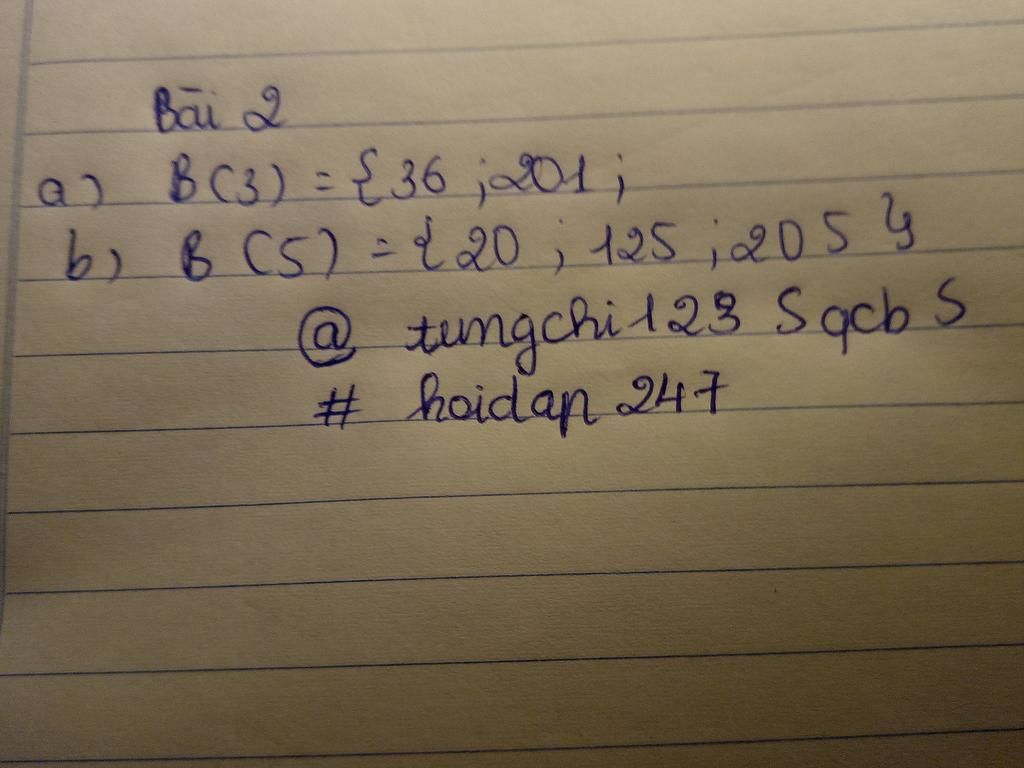 Bài 2
a) B(3) = {36 ; 201 ;
b) B (5) = {20 ; 125 ; 205 }
@ tungchi123 S qcb S
# hoidap 247